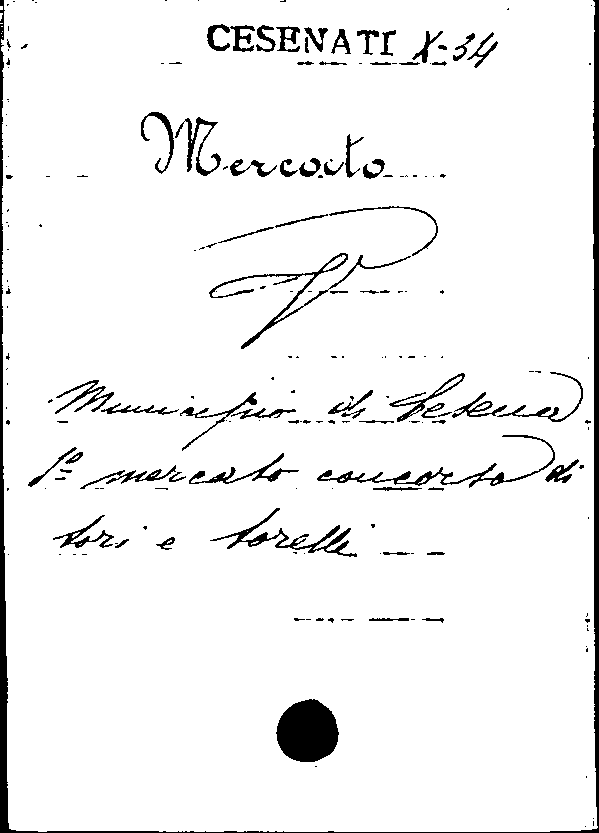 CESENATI X-34
Mercato
V
Municipio di Cesena
1º mercato concorso di
tori e torelli